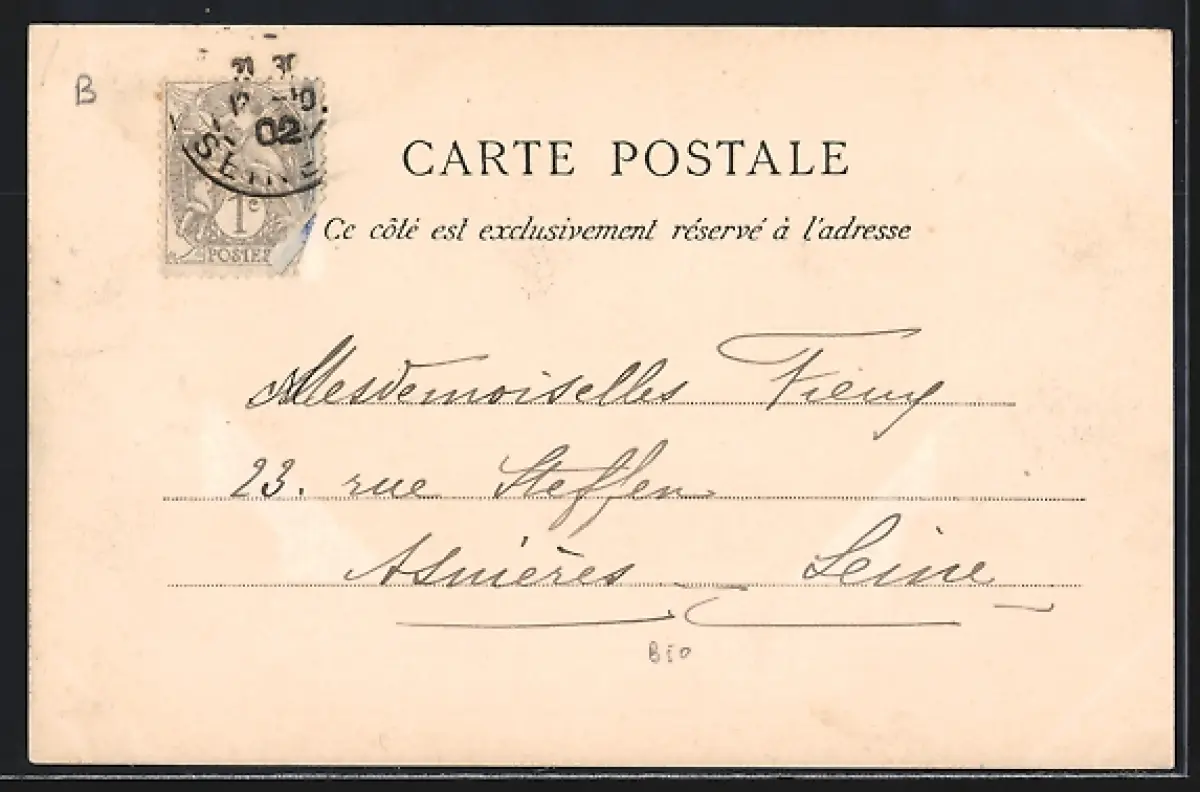 B
02
SEINE
1c
POSTES
CARTE POSTALE
Ce côté est exclusivement réservé à l'adresse
Mesdemoiselles
23. rue Steffen
Asnières - Seine